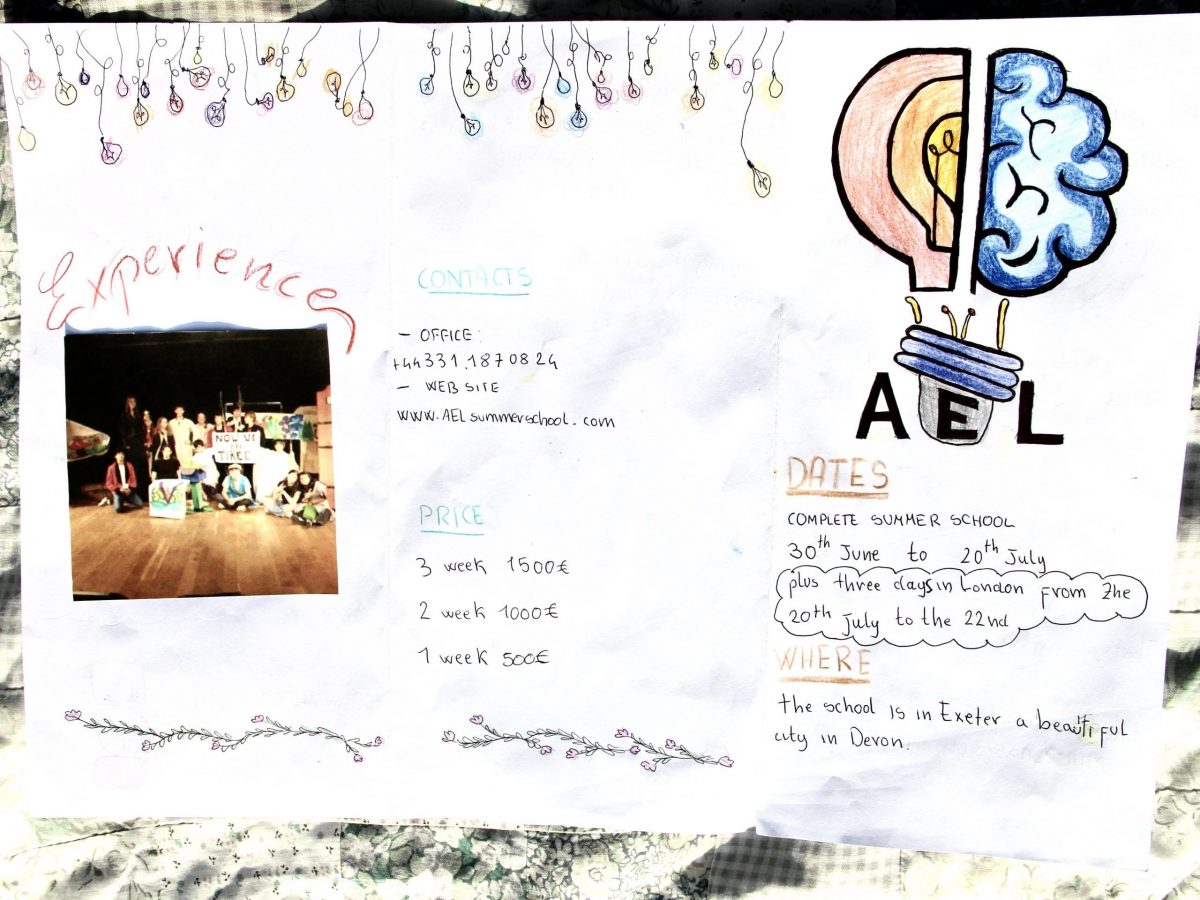 Experience
NOW WE
TIREE
CONTACTS
- OFFICE:
+44331.1870824
- WEB SITE
WWW.AELsummerschool.com
PRICE
3 week 1500€
2 week 1000€
1 week 500€
AEL
DATES
COMPLETE SUMMER SCHOOL
30th June to 20th July
plus three days in London from the
20th July to the 22nd
WHERE
the school is in Exeter a beautiful
city in Devon.